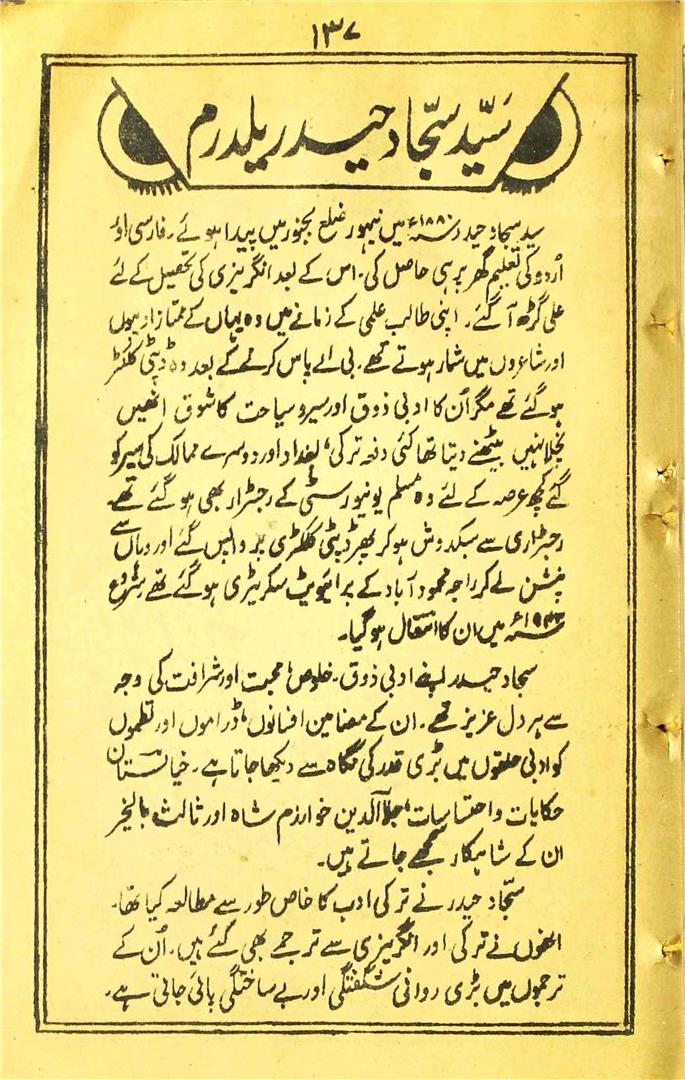 ۱۳۷
سیّد سجّاد حیدر یلدرم
سید سجاد حیدر ۱۸۸۰ء میں نہٹور ضلع بجنور میں پیدا ہوئے۔ فارسی اور
اُردو کی تعلیم گھر پر ہی حاصل کی۔ اس کے بعد انگریزی کی تحصیل کے لئے
علی گڑھ آ گئے۔ اپنی طالب علمی کے زمانے میں وہ یہاں کے ممتاز ادیبوں
اور شاعروں میں شمار ہوتے تھے۔ بی اے پاس کرنے کے بعد وہ ڈپٹی کلکٹر
ہو گئے تھے مگر اُن کا ادبی ذوق اور سیر و سیاحت کا شوق انھیں
نچلا نہیں بیٹھنے دیتا تھا کئی دفعہ ترکی، بغداد اور دوسرے ممالک کی سیر کو
گئے کچھ عرصہ کے لئے وہ مسلم یونیورسٹی کے رجسٹرار بھی ہو گئے تھے۔
رجسٹراری سے سبکدوش ہو کر پھر ڈپٹی کلکٹری پر واپس گئے اور وہاں سے
پنشن لے کر راجہ محمود آباد کے پرائیویٹ سکریٹری ہو گئے تھے شروع
۱۹۴۳ء میں ان کا انتقال ہو گیا۔
سجاد حیدر اپنے ادبی ذوق۔ خلوص، محبت اور شرافت کی وجہ
سے ہر دل عزیز تھے۔ ان کے مضامین افسانوں، ڈراموں اور نظموں
کو ادبی حلقوں میں بڑی قدر کی نگاہ سے دیکھا جاتا ہے۔ خیالستان
حکایات و احتساسات، جلال الدین خوارزم شاہ اور ثالث بالخیر
ان کے شاہکار سمجھے جاتے ہیں۔
سجّاد حیدر نے ترکی ادب کا خاص طور سے مطالعہ کیا تھا۔
انھوں نے ترکی اور انگریزی سے ترجمے بھی کئے ہیں۔ اُن کے
ترجموں میں بڑی روانی شگفتگی اور بے ساختگی پائی جاتی ہے۔